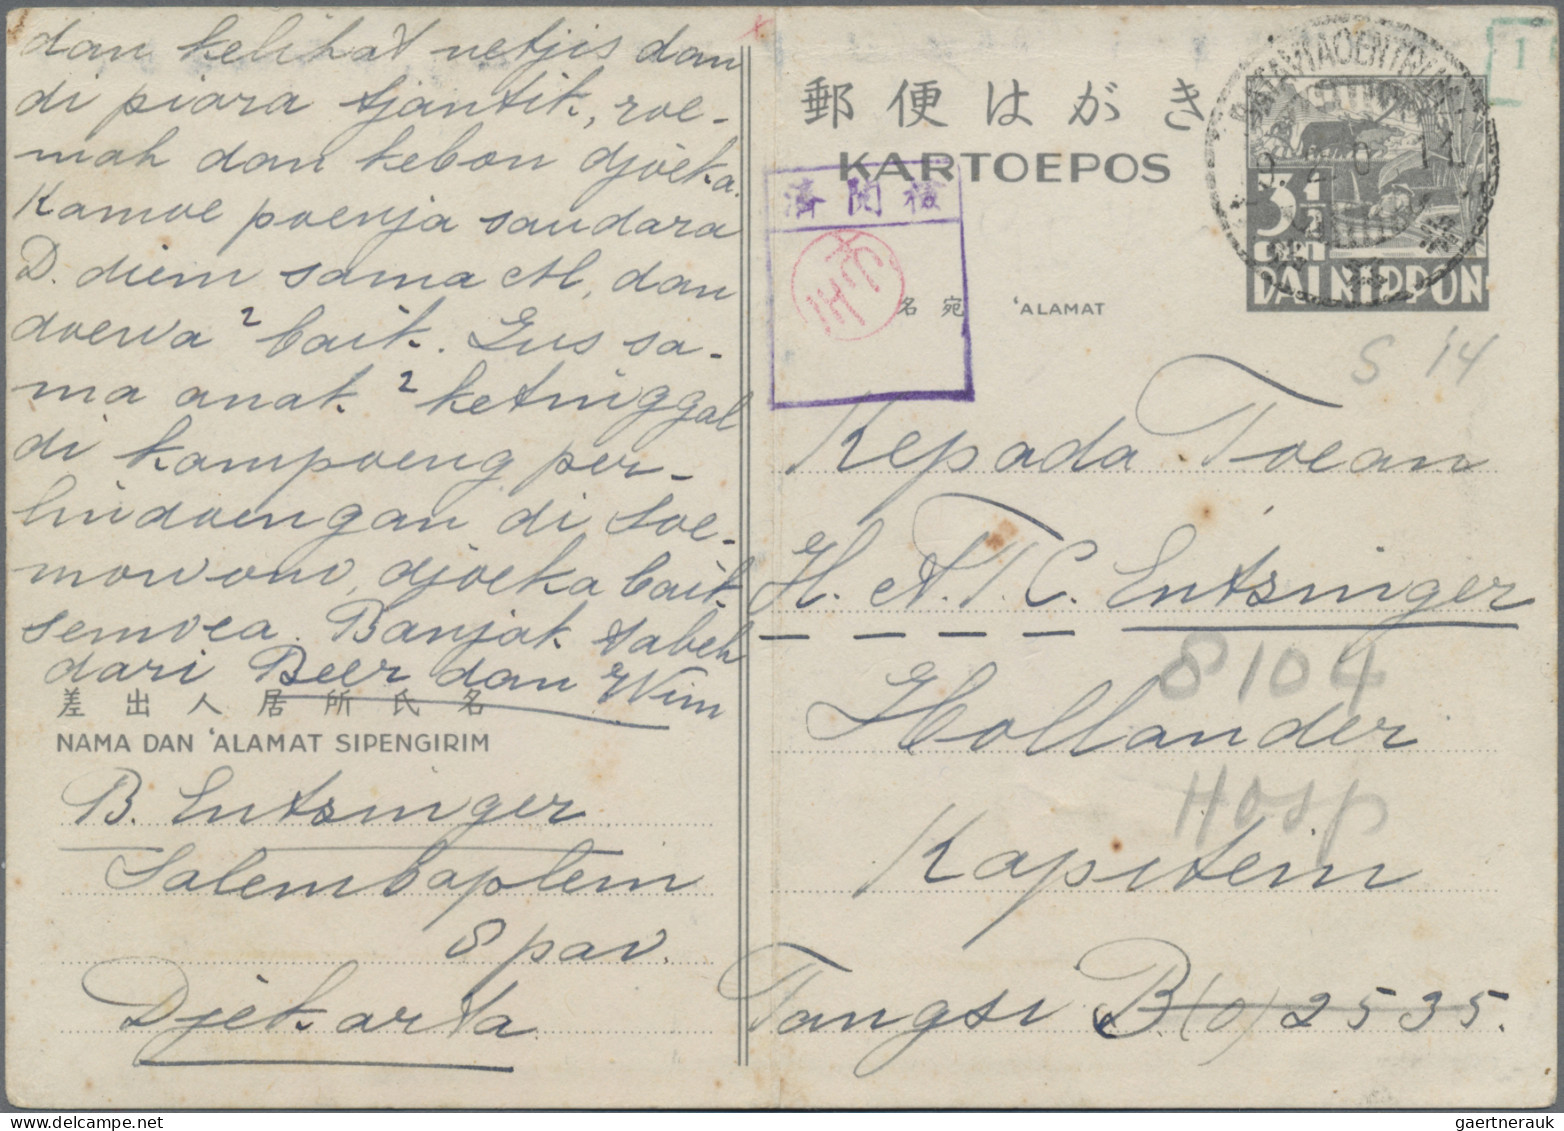 dan kelihat netjis dan
di piara tjantik, roe-
mah dan kebon djoeka.
Kamoe poenja saudara
D. diem sama M, dan
doewa 2 baik. Gus sa-
ma anak 2 ketinggal
di kampoeng per-
lindoengan di Soe-
mowono, djoeka baik
semoea. Banjak tabeh
dari Beer dan Wim
差出人居所氏名
NAMA DAN 'ALAMAT SIPENGIRIM
B. Entzinger
Salembaplein
8 pav.
Djekarta
郵便はがき
KARTOEPOS
検閲済
名宛 'ALAMAT
BATAVIACENTRUM
3½
CENT
DAI NIPPON
1
S 14
Kepada Toean
H. A. T. C. Entzinger
8104
Hollander
Hosp
Kapitein
Tangsi B(o) 2535.
gaertnerauk